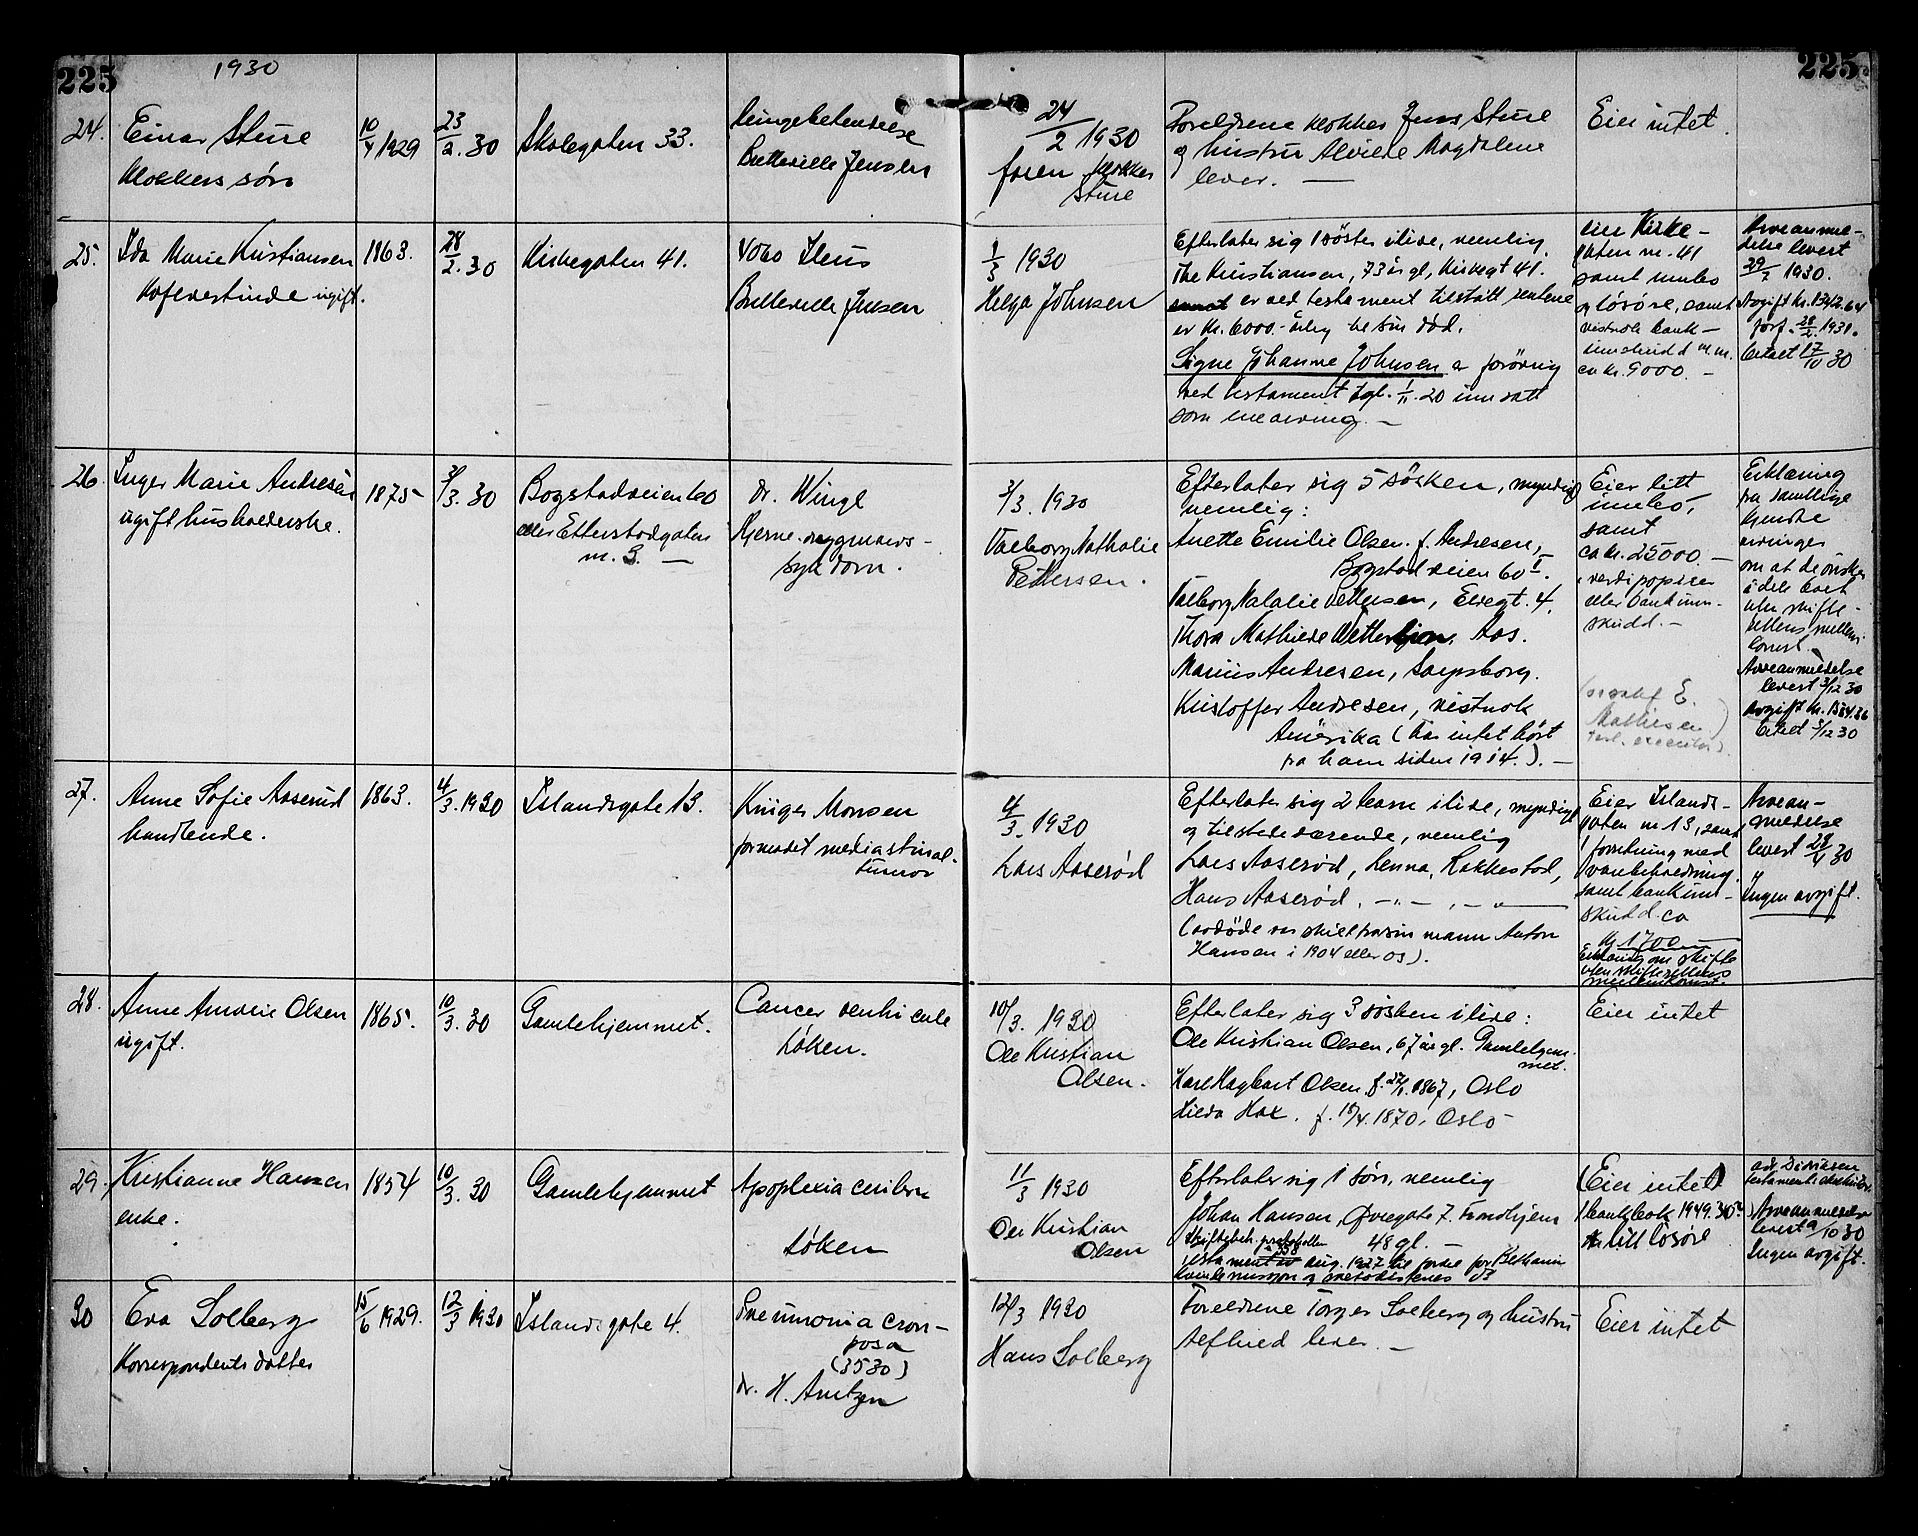 225
1930
225.
24.
Einar Sture
klokkers søn
10/4 1929
23/2. 30
Skolegaten 33.
lungebetendelse
Bretteville Jensen
24/2 1930
faren klokker
Sture
Foreldrene klokker Jens Sture
og hustru Alvilde Magdalene
lever. —
Eier intet.
25.
Ida Marie Kristiansen
ugift.
1863.
28/2. 30
Kirkegaten 41.
Ileus
Bretteville Jensen
1/3 1930
Helga Johnsen
Efterlater sig 1 søster ilive, nemlig
Kristiansen, 73 år gl, Kirkegt 41.
er ved testament tilstått rentene
av kr. 6000.- årlig til sin død.
Signe Johanne Johnsen er forøvrig
ved testament tgl. 1/11. 20 innsatt
som enearving. —
Eier Kirke-
gaten nr. 41
samt innbo
og løsøre, samt
vistnok bank-
innskudd m.m.
ca kr. 9000. —
Arveanmel-
delse levert
29/3 1930.
Avgift kr. 1342.64
forf. 28/2. 1931.
betalt 17/10 30
26.
Inger Marie Andresen
ugift husholderske.
1875
3/3. 30
Bogstadveien 60
eller Etterstadgaten
nr. 3. —
dr. Winge
Hjerne-rygmarvs-
sykdom.
3/3. 1930
Valborg Nathalie
Pettersen.
Efterlater sig 5 søsken, myndige
nemlig:
Anette Emilie Olsen f. Andresen,
Bogstadveien 60 I.
Valborg Natalie Pettersen, Elvegt. 4,
Thora Mathilde Aas.
Marius Andresen, Sarpsborg.
Kristoffer Andresen, vistnok
Amerika (har intet hørt
fra ham siden 1914.). —
Eier litt
innbo,
samt
ca kr. 25000. —
i verdipapirer
eller bankinn-
skudd. —
E.
Mathiesen)
Erklæring
fra samtlige
kjendte
arvinger
om at de ønsker
å dele boet
uten skifte-
rettens mellem-
komst.
Arveanmeldelse
levert 3/12 30
Avgift kr. 1584.36
betalt 5/12 30
27.
Anne Sofie Aaserud
handlende.
1863.
4/3. 1930
Islandsgate 13.
Krüger Monsen
formodet mediastinal-
tumor
4/3. 1930
Lars Aaserød
Efterlater sig 2 barn ilive, myndige
og tilstedeværende, nemlig
Lars Aaserød, Lenna, Rakkestad,
Hans Aaserød, —"— , —"—
(avdøde var skilt fra sin mann Anton
Hansen i 1904 eller 05).
Eier Islands-
gaten nr 13, samt
forretning med
varebeholdning.
samt bankinn-
skudd ca
kr 1700 —
Erklæring om skifte
uten skifterettens
mellemkomst.
Arvean-
meldelse
levert 28/4 30
Ingen avgift.
28.
Anne Amalie Olsen
ugift.
1865.
10/3. 30
Gamlehjemmet.
Cancer ventriculi
Løken.
10/3. 1930
Ole Kristian
Olsen.
Efterlater sig 3 søsken ilive:
Ole Kristian Olsen, 67 år gl. Gamlehjem-
met.
Karl Hagbart Olsen f. 1867, Oslo
Hilda Hox. f. 18/4. 1870, Oslo
Eier intet
29.
Kristianne Hansen
enke.
1854
10/3. 30
Gamlehjemmet
Apoplexia cerebri
Løken
11/3 1930
Ole Kristian
Olsen
Efterlater sig 1 søn, nemlig
Johan Hansen, Øvregate 7. Trondhjem
48 gl. —
Skiftebeh. protokollen
testament av aug. 1927 til fordel for Bethania
og metodistenes
(Eier intet)
1 bankbok 1949.30
litt løsøre
adv. Didriksen
testamentseksekutor.
Arveanmeldelse
levert 9/10 30
Ingen avgift.
30
Eva Solberg
Korrespondents datter
15/6 1929.
12/3 1930
Islandsgate 4.
Pneumonia crou-
posa
(3530)
dr. H. Arntzen
12/3 1930
Hans Solberg
Foreldrene Torger Solberg og hustru
lever. —
Eier intet